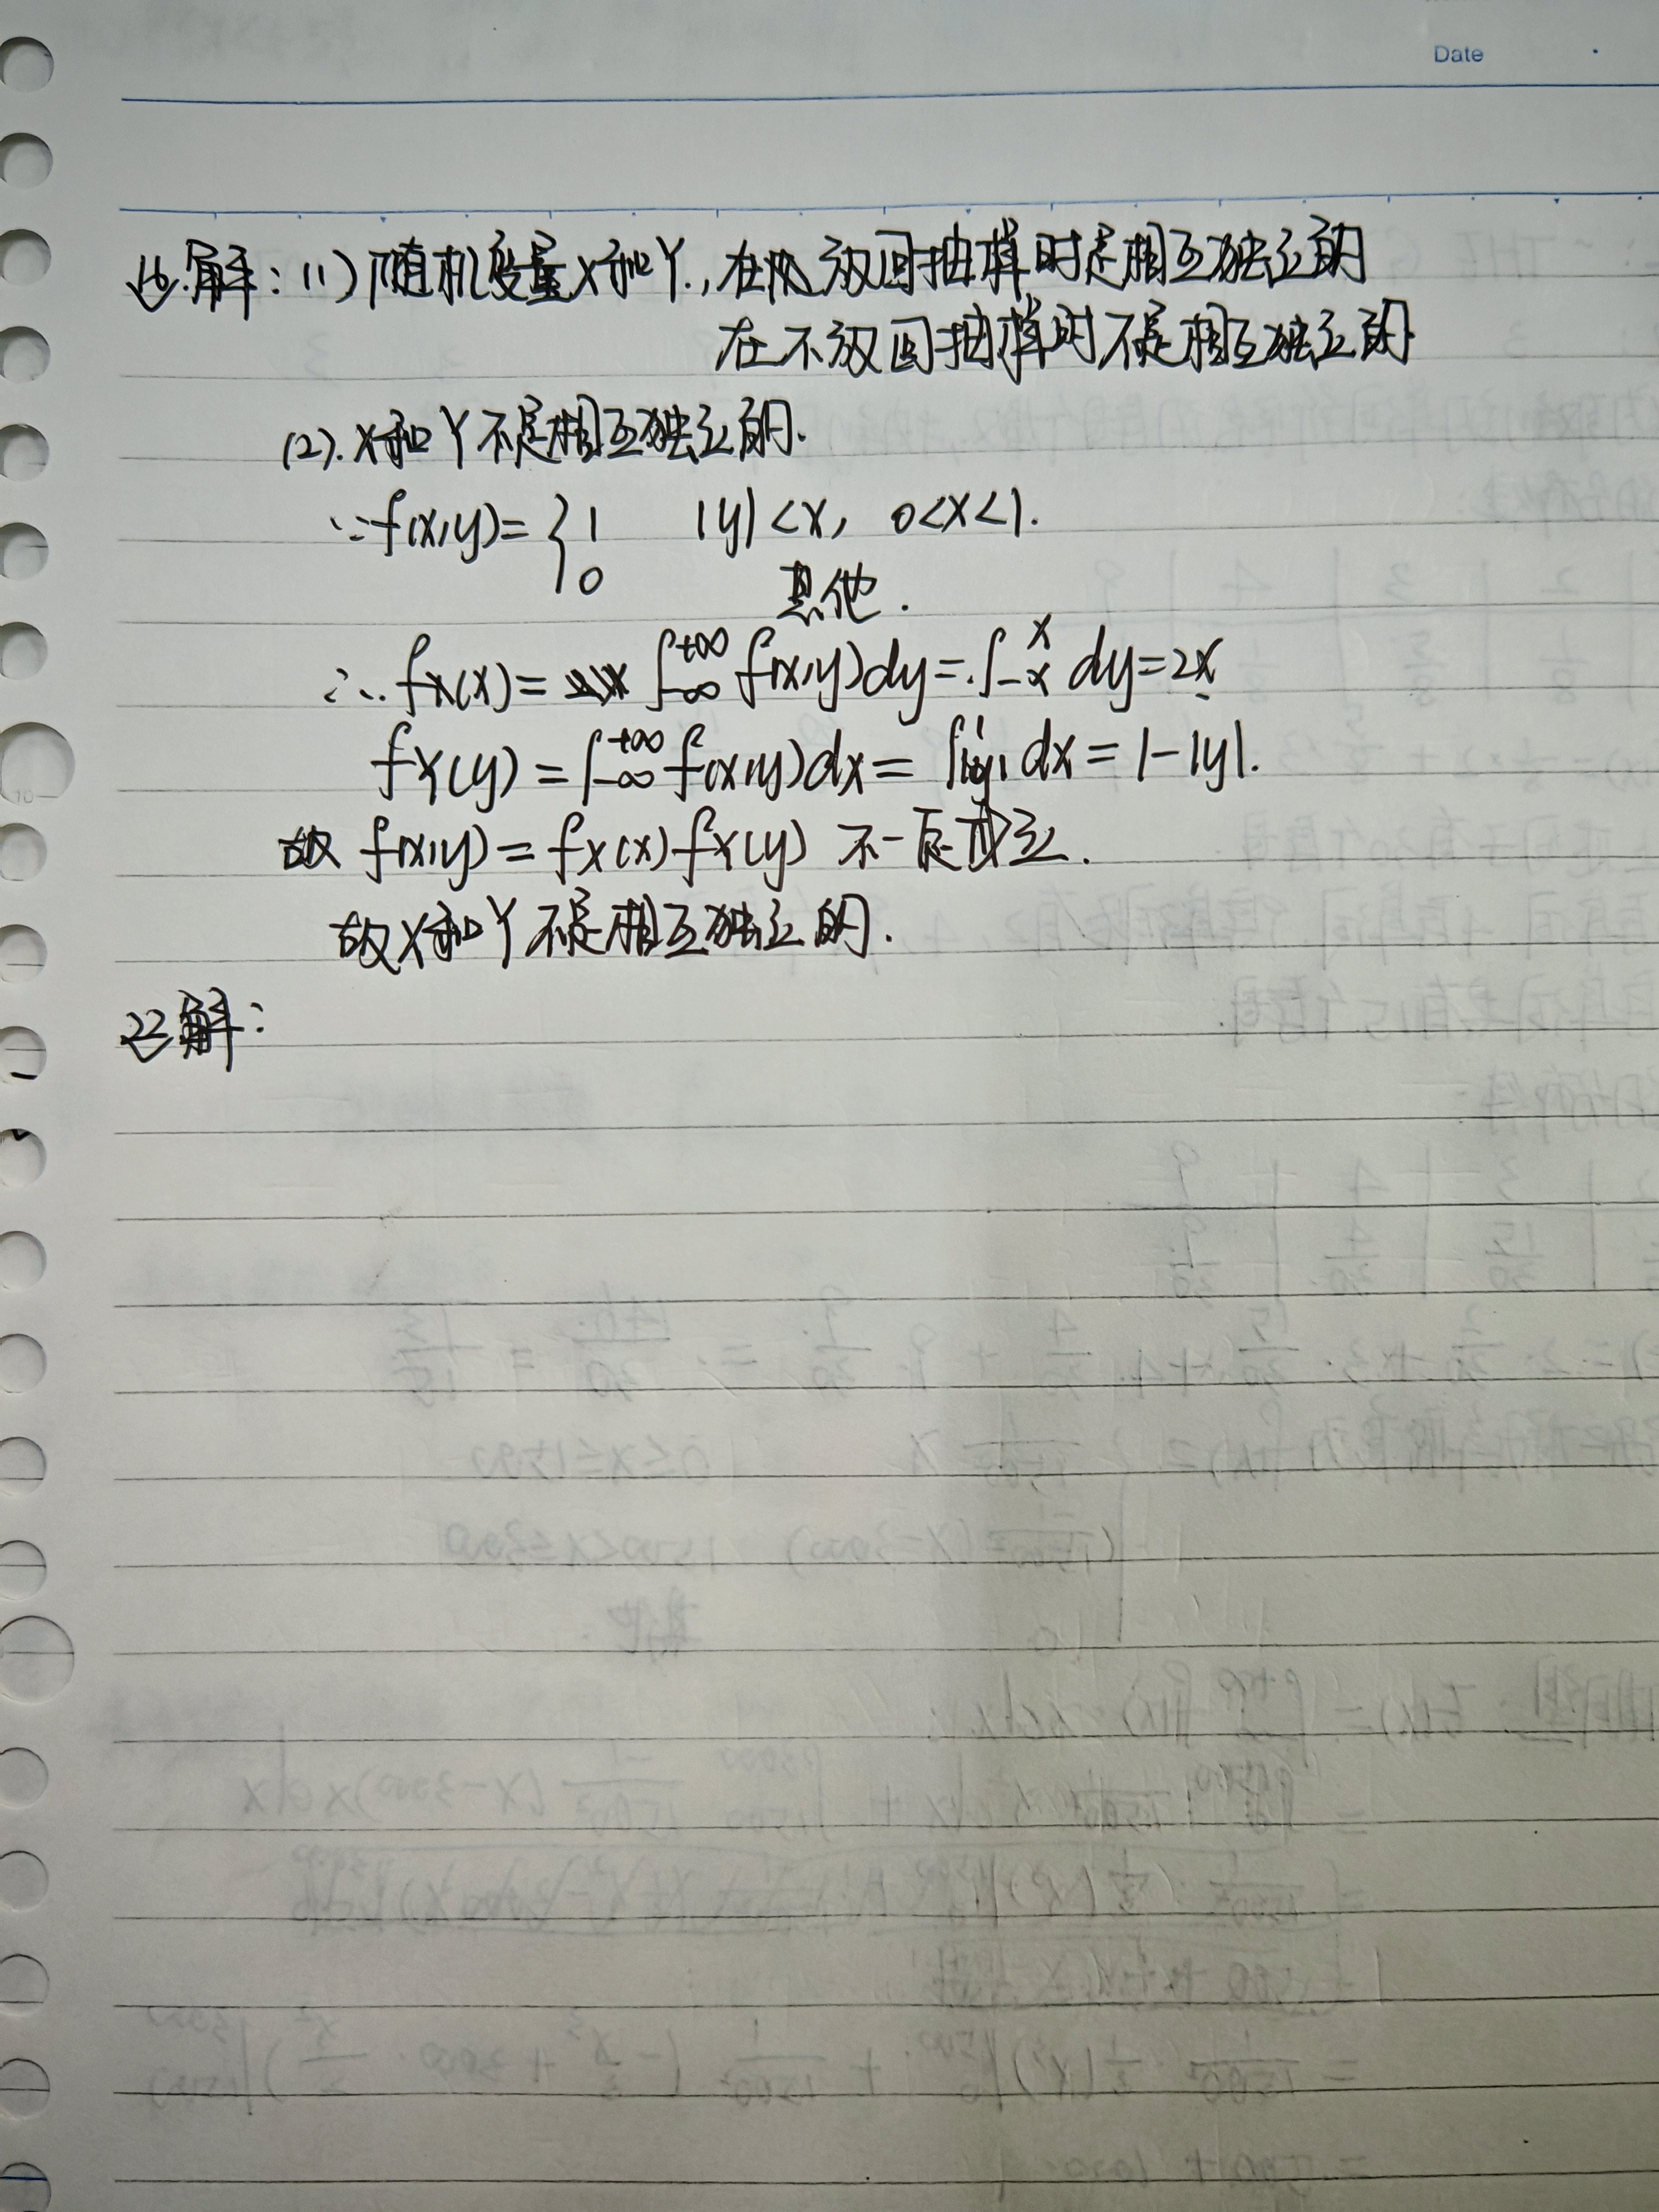 Date
16.解：(1)随机变量X和Y.,在放回抽样时是相互独立的
在不放回抽样时不是相互独立的
(2).X和Y不是相互独立的.
∵f(x,y)={1 |y|<x, 0<x<1.
0 其他.
∴.fx(x)=∫-∞+∞f(x,y)dy=.∫-xx dy=2x
fY(y)=∫-∞+∞f(x,y)dx=∫|y|1dx=1-|y|.
故 f(x,y)=fx(x)fY(y) 不一定成立.
故X和Y不是相互独立的.
22解：